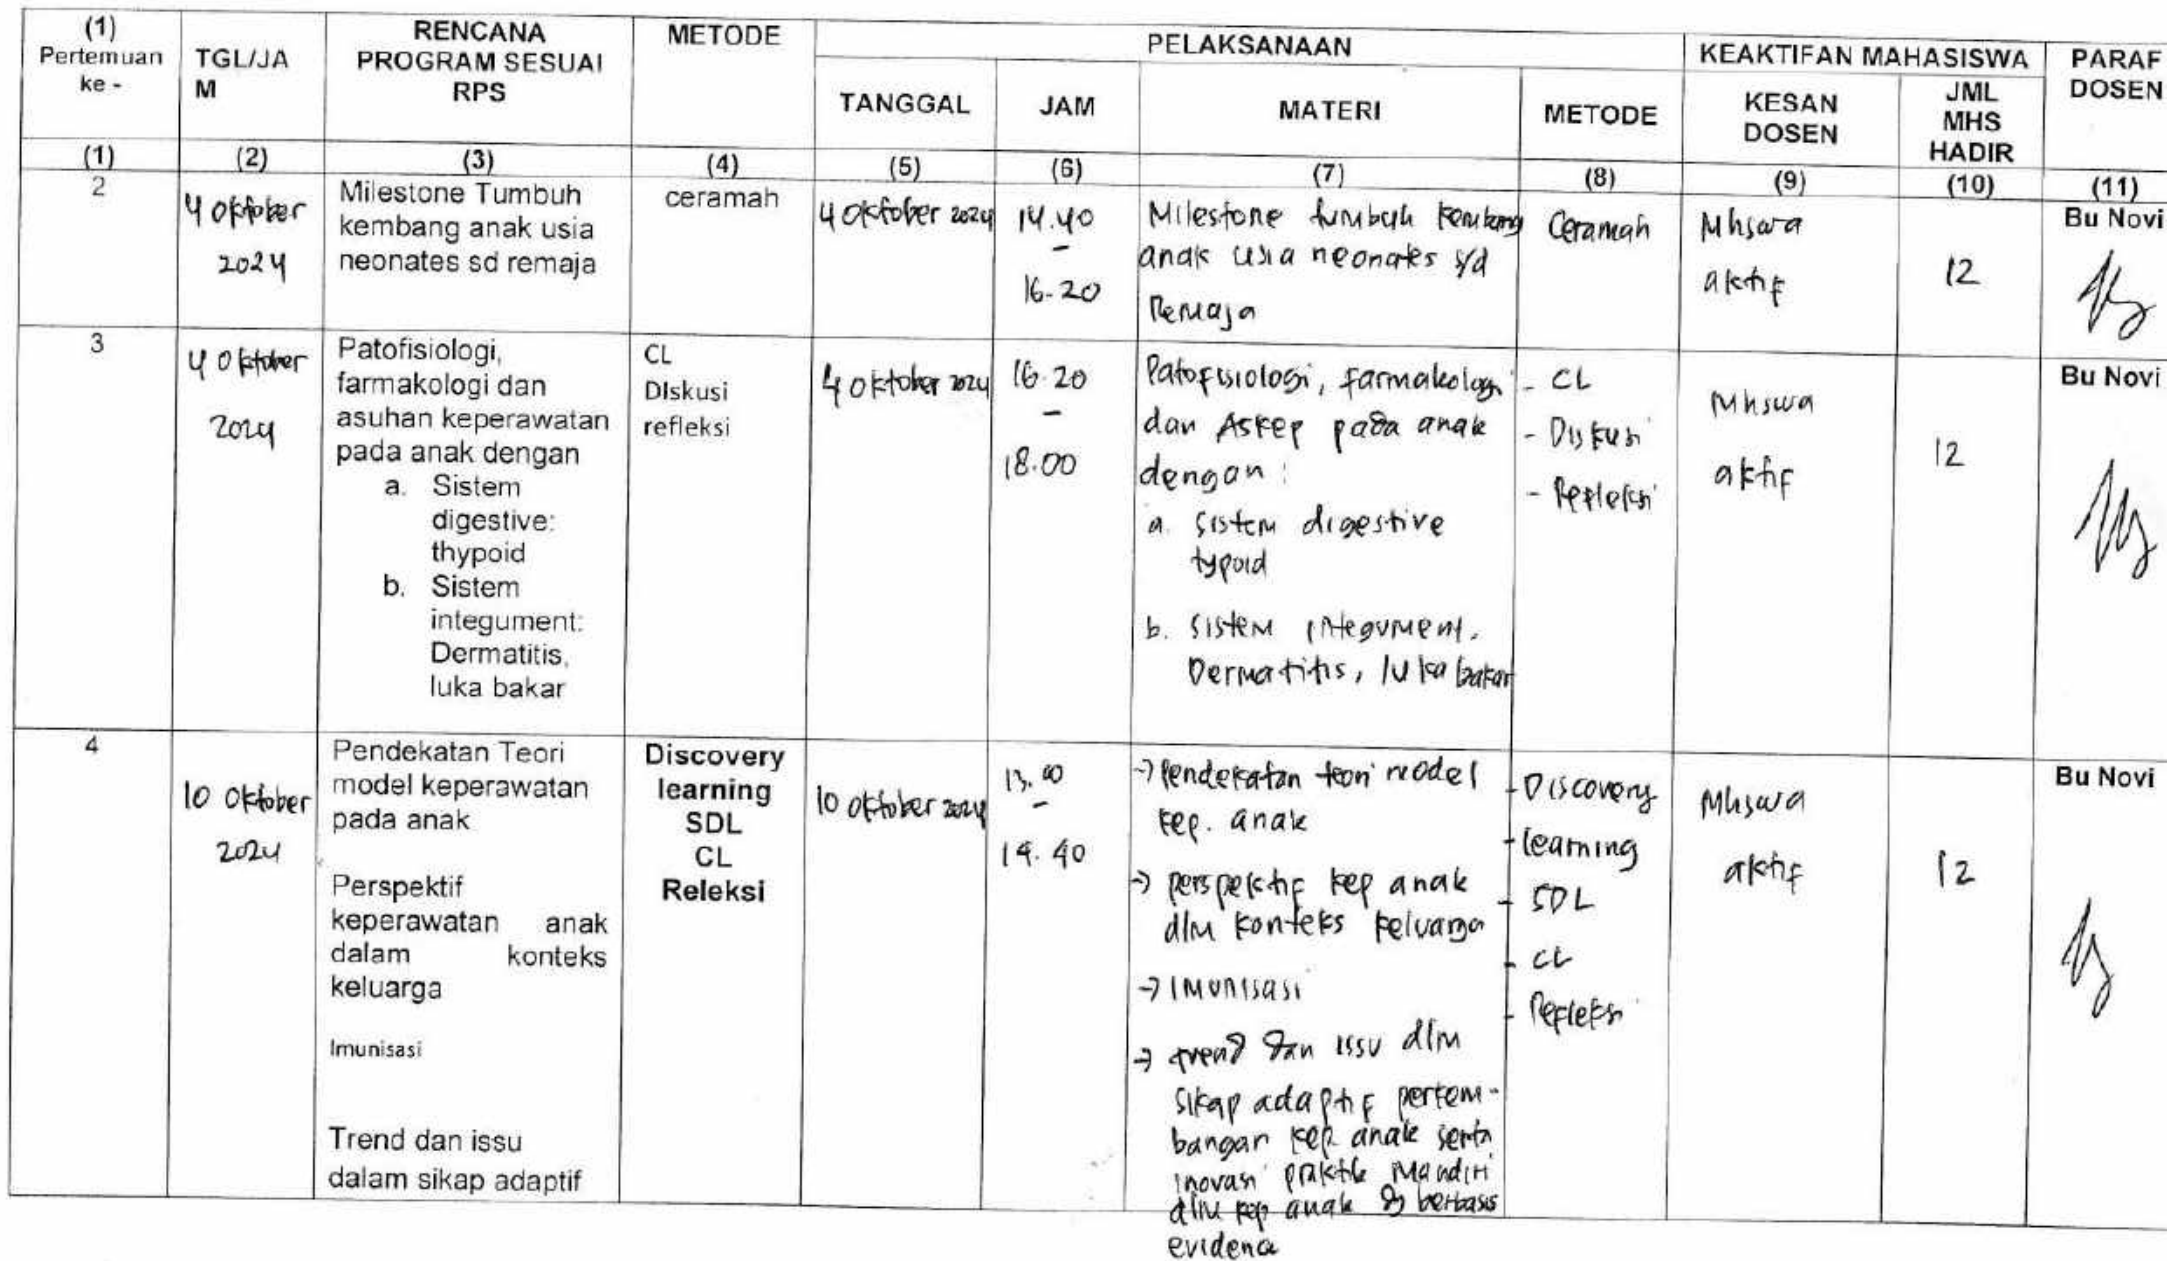 (1)
Pertemuan
ke -
TGL/JA
M
RENCANA
PROGRAM SESUAI
RPS
METODE
PELAKSANAAN
KEAKTIFAN MAHASISWA
PARAF
DOSEN
TANGGAL
JAM
MATERI
METODE
KESAN
DOSEN
JML
MHS
HADIR
(1)
(2)
(3)
(4)
(5)
(6)
(7)
(8)
(9)
(10)
(11)
2
4 Oktober
2024
Milestone Tumbuh
kembang anak usia
neonates sd remaja
ceramah
4 Oktober 2024
14.40
-
16.20
Milestone tumbuh kembang
anak usia neonates s/d
Remaja
Ceramah
Mhswa
aktif
12
Bu Novi
3
4 Oktober
2024
Patofisiologi,
farmakologi dan
asuhan keperawatan
pada anak dengan
a. Sistem
digestive:
thypoid
b. Sistem
integument:
Dermatitis,
luka bakar
CL
DIskusi
refleksi
4 Oktober 2024
16.20
-
18.00
Patofisiologi, farmakologi
dan Askep pada anak
dengan :
a. sistem digestive
typoid
b. sistem integument.
Dermatitis, luka bakar
- CL
- Diskusi
- Refleksi
Mhswa
aktif
12
Bu Novi
4
10 Oktober
2024
Pendekatan Teori
model keperawatan
pada anak
Perspektif
keperawatan anak
dalam konteks
keluarga
Imunisasi
Trend dan issu
dalam sikap adaptif
Discovery
learning
SDL
CL
Releksi
10 Oktober 2024
13.00
-
14.40
→ Pendekatan teori model
kep. anak
→ perspektif kep anak
dlm konteks keluarga
→ Imunisasi
→ trend dan issu dlm
sikap adaptif perkem-
bangan kep. anak serta
inovasi praktik Mandiri
dlm kep anak yg berbasis
evidence
- Discovery
- learning
- SDL
- CL
- Refleksi
Mhswa
aktif
12
Bu Novi